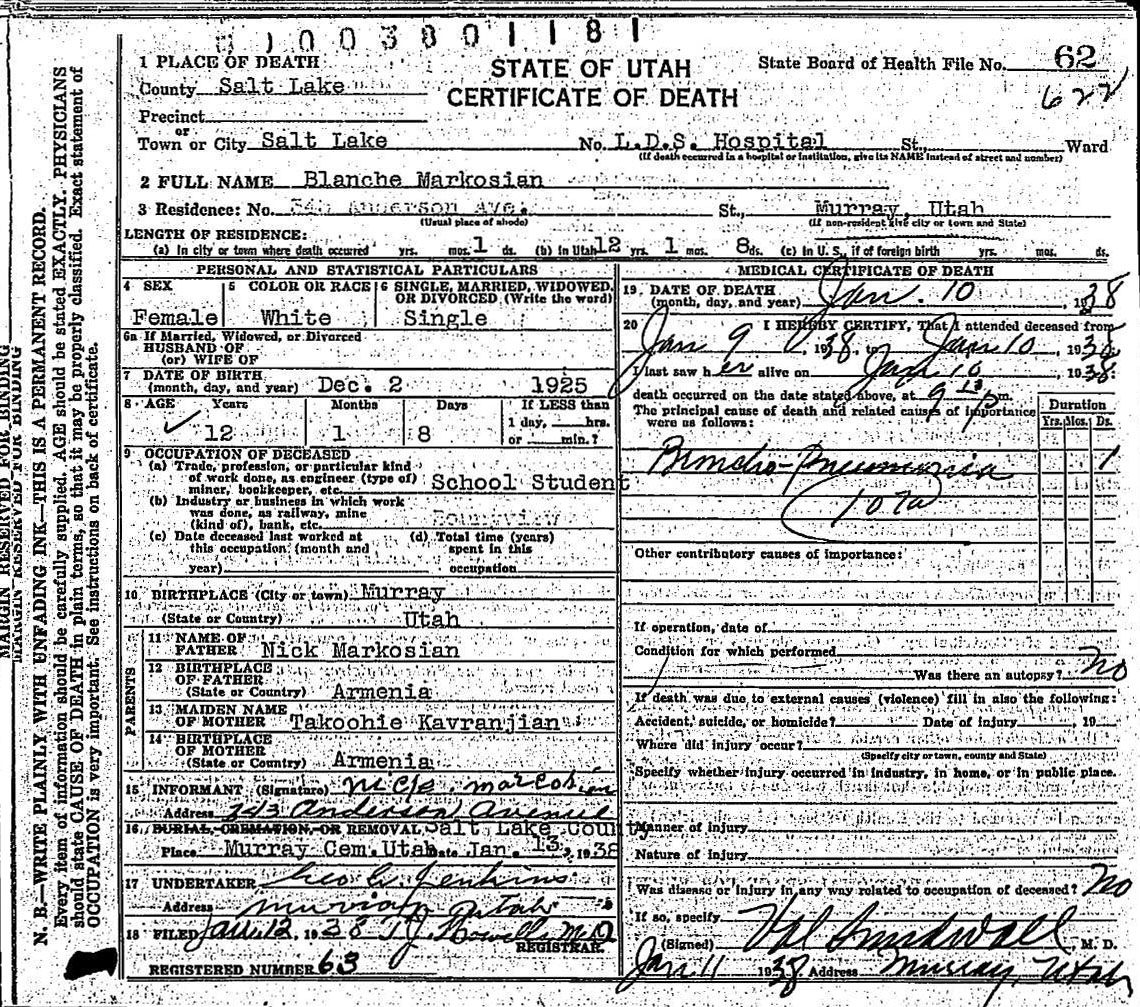 0 1 0 0 3 8 0 1 1 8 1
STATE OF UTAH
CERTIFICATE OF DEATH
State Board of Health File No. 62
622
1 PLACE OF DEATH
County Salt Lake
Precinct
or
Town or City Salt Lake No. L.D.S. Hospital St., Ward
(If death occurred in a hospital or institution, give its NAME instead of street and number)
2 FULL NAME Blanche Markosian
3 Residence: No. Anderson Ave. St., Murray, Utah
(Usual place of abode) (If non-resident give city or town and State)
LENGTH OF RESIDENCE:
(a) In city or town where death occurred yrs. mos. 1 ds. (b) In Utah 12 yrs. 1 mos. 8 ds. (c) In U. S., if of foreign birth yrs. mos. ds.
PERSONAL AND STATISTICAL PARTICULARS
4 SEX 5 COLOR OR RACE 6 SINGLE, MARRIED, WIDOWED, OR DIVORCED (Write the word)
Female White Single
6a If Married, Widowed, or Divorced
HUSBAND OF
(or) WIFE OF
7 DATE OF BIRTH
(month, day, and year) Dec. 2 1925
8 AGE Years Months Days If LESS than
1 day, hrs.
12 1 8 or min.?
9 OCCUPATION OF DECEASED
(a) Trade, profession, or particular kind
of work done, as engineer (type of)
miner, bookkeeper, etc. School Student
(b) Industry or business in which work
was done, as railway, mine
(kind of), bank, etc.
(c) Date deceased last worked at
this occupation (month and
year)
(d) Total time (years)
spent in this
occupation
10 BIRTHPLACE (City or town) Murray
(State or Country) Utah
PARENTS
11 NAME OF
FATHER Nick Markosian
12 BIRTHPLACE
OF FATHER
(State or Country) Armenia
13 MAIDEN NAME
OF MOTHER Takoohie Kavranjian
14 BIRTHPLACE
OF MOTHER
(State or Country) Armenia
15 INFORMANT (Signature) Nick Marcosian
Address 343 Anderson Avenue
16 BURIAL, CREMATION, OR REMOVAL Salt Lake County
Place Murray Cem. Utah Date Jan. 13, 1938
17 UNDERTAKER Geo C. Jenkins
Address Murray Utah
18 FILED Jan. 12, 1938 T.J. Howells M.D.
REGISTRAR
REGISTERED NUMBER 63
MEDICAL CERTIFICATE OF DEATH
19 DATE OF DEATH
(month, day, and year) Jan. 10, 1938
20 I HEREBY CERTIFY, That I attended deceased from
Jan 9, 1938, to Jan 10, 1938
I last saw her alive on Jan 10, 1938:
death occurred on the date stated above, at 9 p m.
The principal cause of death and related causes of importance
were as follows:
Duration
Yrs. Mos. Ds.
Broncho-Pneumonia 1
107a
Other contributory causes of importance:
If operation, date of
Condition for which performed
Was there an autopsy? No
If death was due to external causes (violence) fill in also the following:
Accident, suicide, or homicide? Date of injury , 19
Where did injury occur?
(Specify city or town, county and State)
Specify whether injury occurred in industry, in home, or in public place.
Manner of injury
Nature of injury
Was disease or injury in any way related to occupation of deceased? No
If so, specify
(Signed) Val Sundwall, M. D.
Jan 11 1938 Address Murray, Utah
MARGIN RESERVED FOR BINDING
MARGIN RESERVED FOR BINDING
N. B.—WRITE PLAINLY WITH UNFADING INK—THIS IS A PERMANENT RECORD.
Every item of information should be carefully supplied. AGE should be stated EXACTLY. PHYSICIANS
should state CAUSE OF DEATH in plain terms, so that it may be properly classified. Exact statement of
OCCUPATION is very important. See instructions on back of certificate.